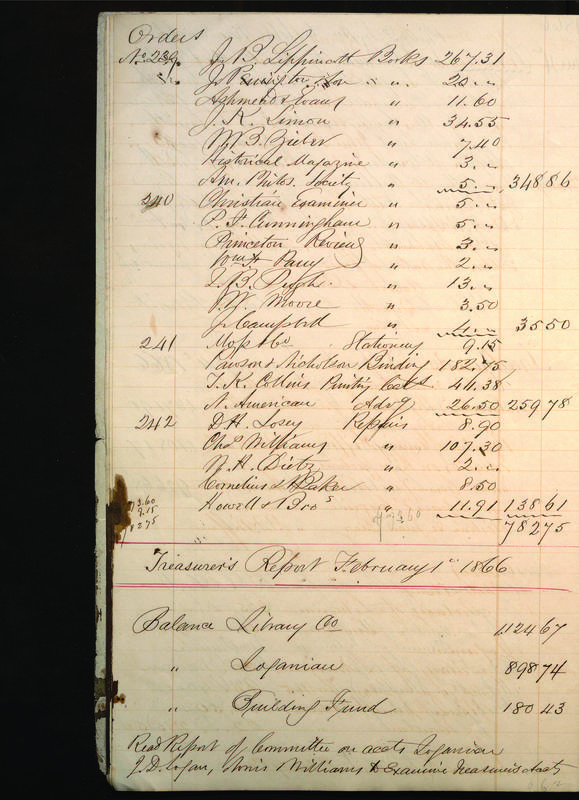 Orders
No 239 J. B. Lippincott Books 267.31
J Penington & Son " 20. "
Ashmead & Evans " 11.60
J. K. Simon " 34.55
W B. Zieber " 7.40
Historical Magazine " 3. "
Am. Philos. Society " 5. " 348 86
240 Christian Examiner " 5. "
P. F. Cunningham " 5. "
Princeton Review " 3. "
Wm H Parry " 2. "
J. B. " 13. "
J. W. Moore " 3.50
J Campbell " 4. " 35 50
241 Moss & Co Stationery 9.15
Pawson & Nicholson Binding 182.75
T. K. Collins Printing 44.38
N. American Advg 26.50 259 78
242 D H. Losey Repairs 8.90
Chas Williams " 107.30
N. H. Dietz " 2. "
Cornelius & Baker " 8.50
Howell & Bros " 11.91 138 61
782 75
Treasurer's Report February 1" 1866
Balance Library Co 1124 67
" Loganian 898 74
" Building Fund 180 43
Read Report of Committee on accts Loganian
J. D. Logan, Williams to Examine Treasurers Accts